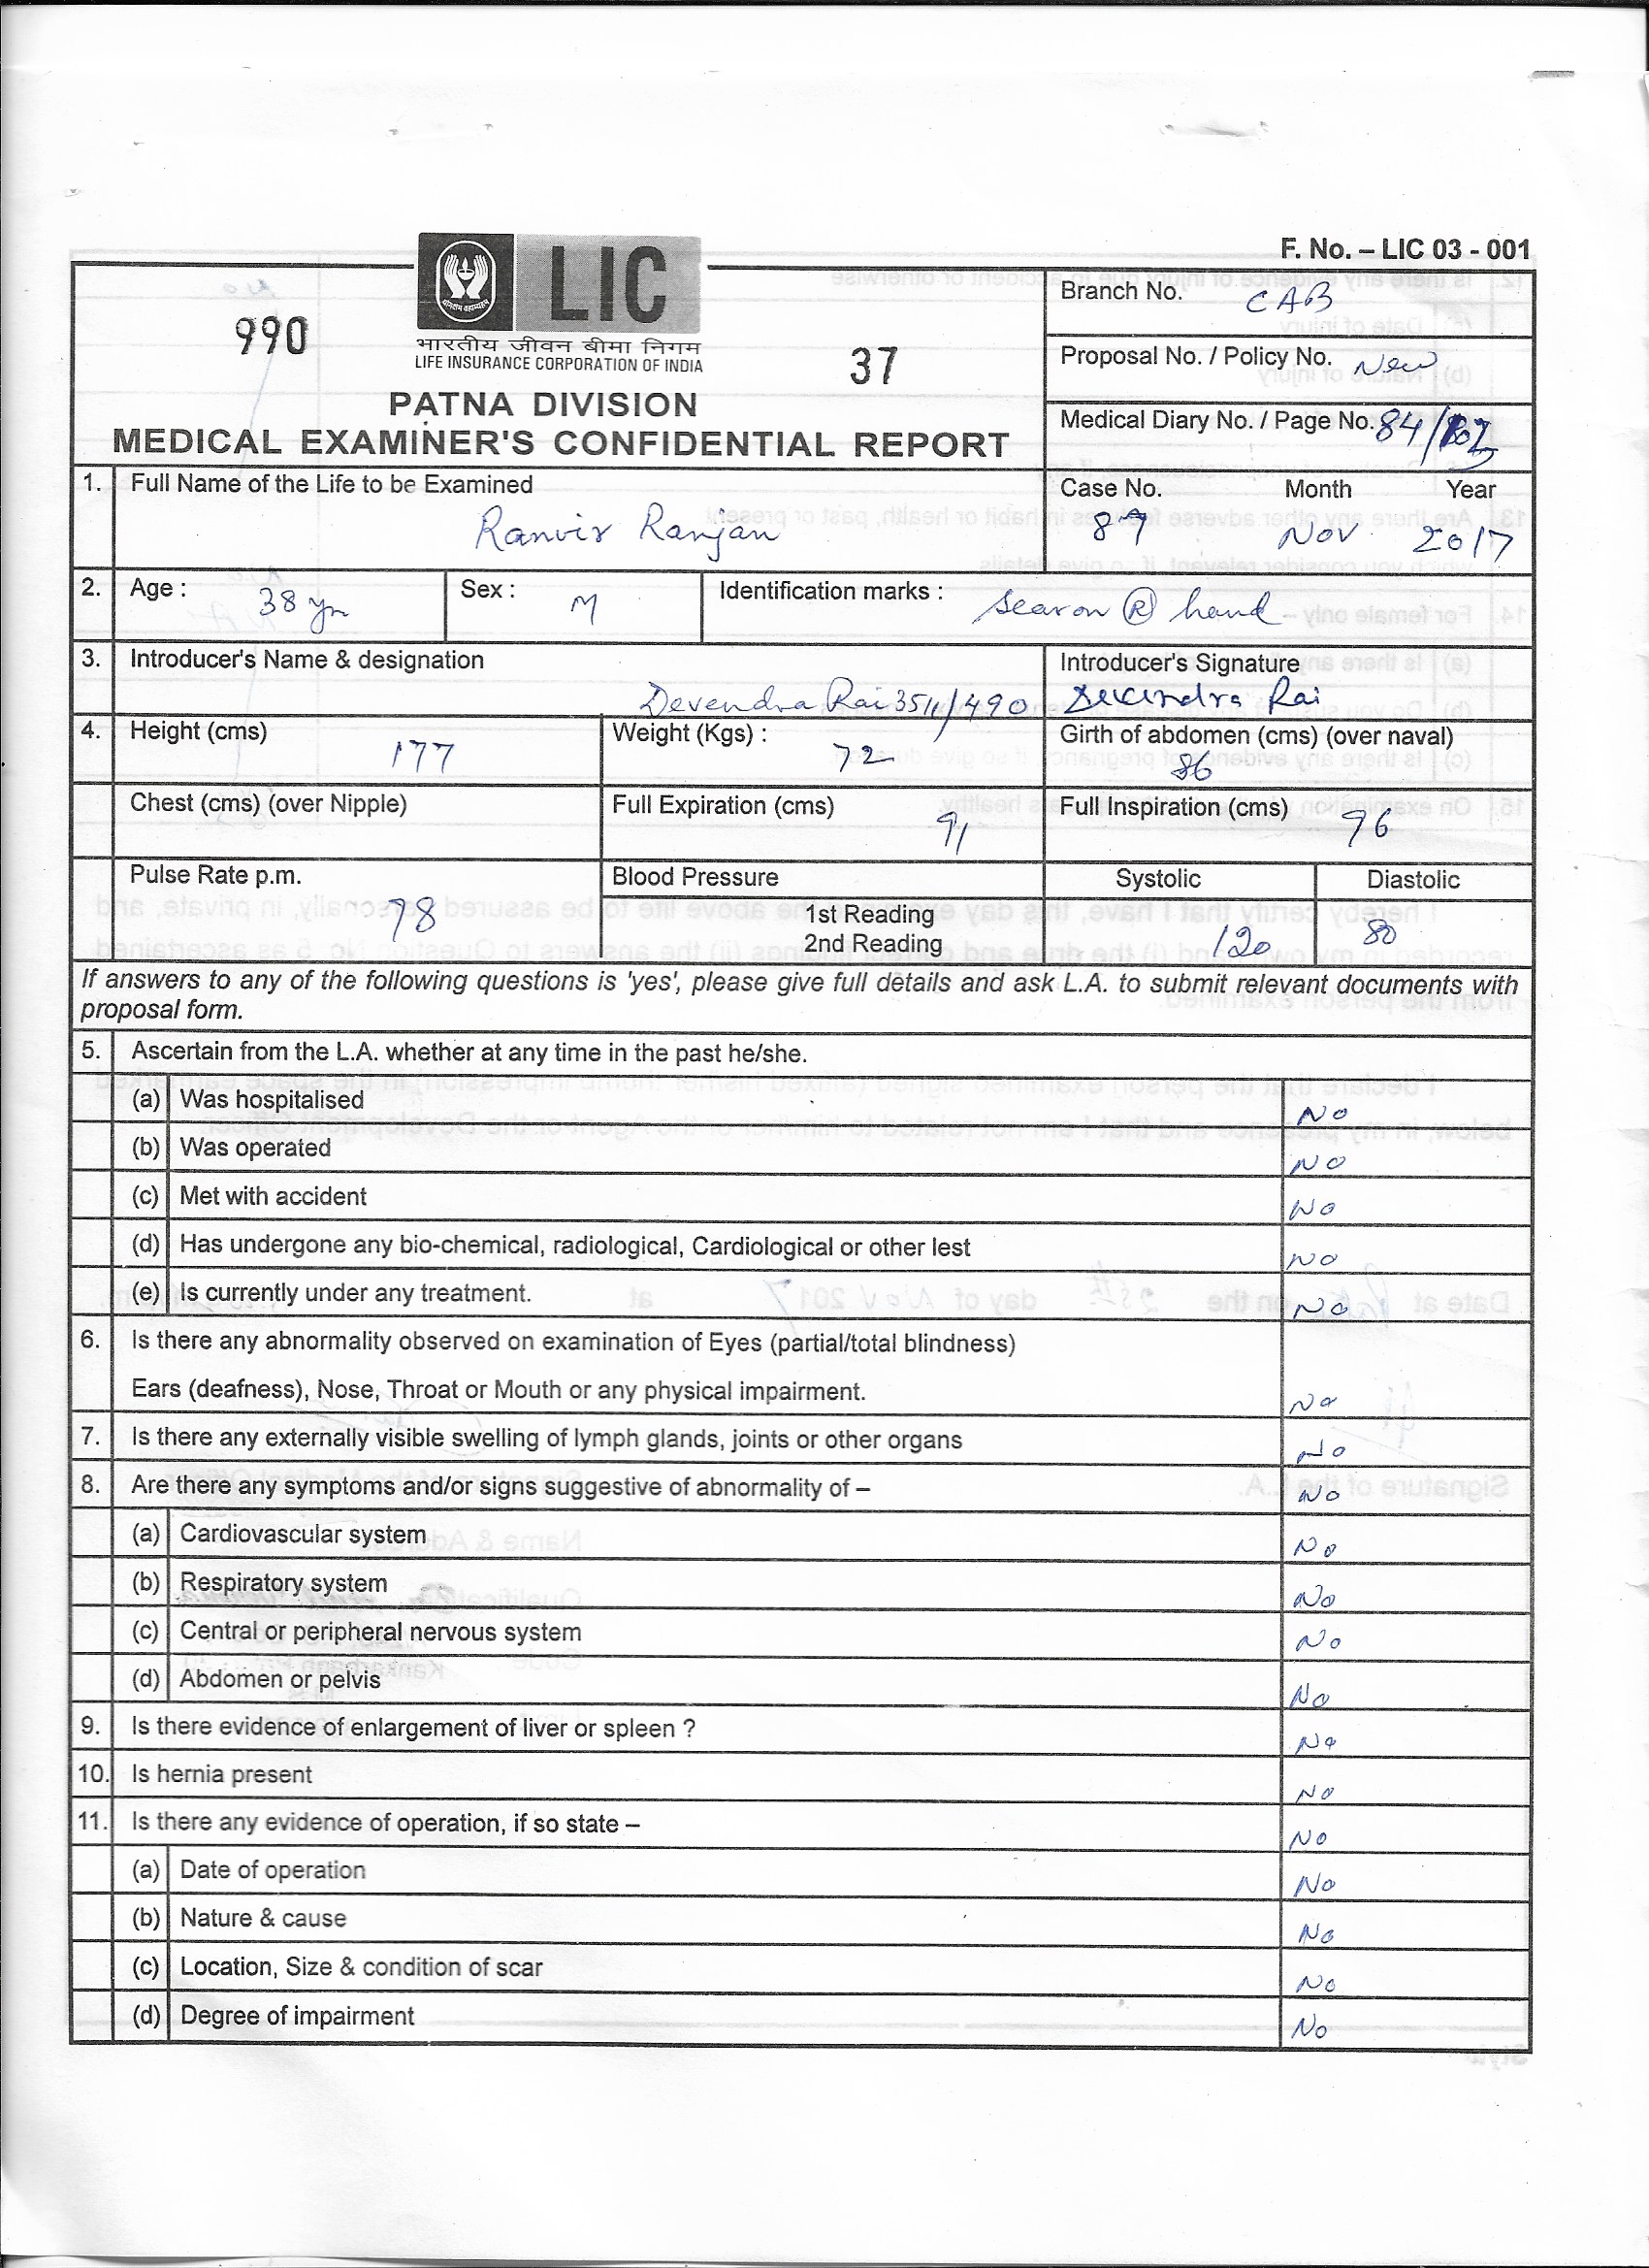 F. No. – LIC 03 - 001
990
LIC
भारतीय जीवन बीमा निगम
LIFE INSURANCE CORPORATION OF INDIA
37
PATNA DIVISION
MEDICAL EXAMINER'S CONFIDENTIAL REPORT
Branch No. CAB
Proposal No. / Policy No. New
Medical Diary No. / Page No. 84/
1. Full Name of the Life to be Examined
Ranvir Ranjan
Case No. Month Year
87 Nov 2017
2. Age : 38 yrs Sex : M Identification marks : Scar on R hand
3. Introducer's Name & designation Introducer's Signature
Devendra Rai 3511/490 Devendra Rai
4. Height (cms) 177 Weight (Kgs) : 72 Girth of abdomen (cms) (over naval) 86
Chest (cms) (over Nipple) Full Expiration (cms) 91 Full Inspiration (cms) 96
Pulse Rate p.m. 78 Blood Pressure Systolic Diastolic
1st Reading
2nd Reading 120 80
If answers to any of the following questions is 'yes', please give full details and ask L.A. to submit relevant documents with
proposal form.
5. Ascertain from the L.A. whether at any time in the past he/she.
(a) Was hospitalised No
(b) Was operated No
(c) Met with accident No
(d) Has undergone any bio-chemical, radiological, Cardiological or other lest No
(e) Is currently under any treatment. No
6. Is there any abnormality observed on examination of Eyes (partial/total blindness)
Ears (deafness), Nose, Throat or Mouth or any physical impairment. No
7. Is there any externally visible swelling of lymph glands, joints or other organs No
8. Are there any symptoms and/or signs suggestive of abnormality of – No
(a) Cardiovascular system No
(b) Respiratory system No
(c) Central or peripheral nervous system No
(d) Abdomen or pelvis No
9. Is there evidence of enlargement of liver or spleen ? No
10. Is hernia present No
11. Is there any evidence of operation, if so state – No
(a) Date of operation No
(b) Nature & cause No
(c) Location, Size & condition of scar No
(d) Degree of impairment No